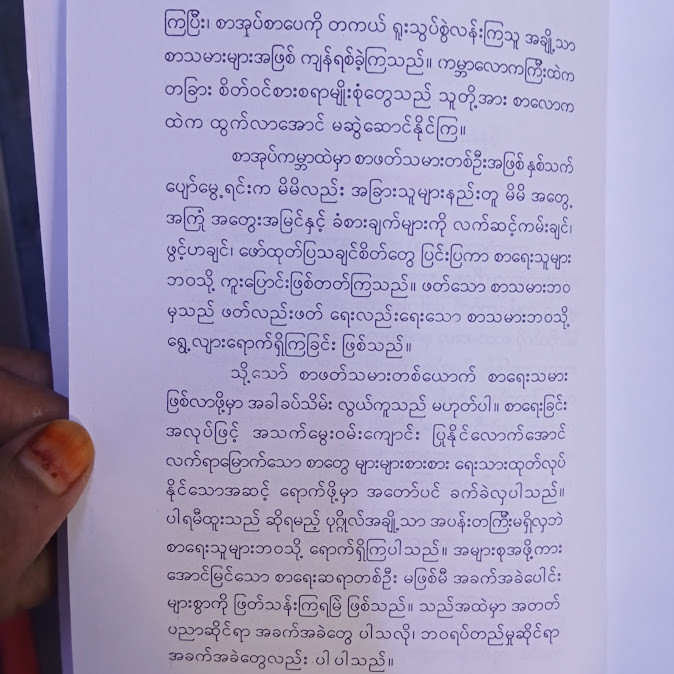 ကြပြီး၊ စာအုပ်စာပေကို တကယ် ရူးသွပ်စွဲလန်းကြသူ အချို့သာ
စာသမားများအဖြစ် ကျန်ရစ်ခဲ့ကြသည်။ ကမ္ဘာလောကကြီးထဲက
တခြား စိတ်ဝင်စားစရာမျိုးစုံတွေသည် သူတို့အား စာလောက
ထဲက ထွက်လာအောင် မဆွဲဆောင်နိုင်ကြ။
စာအုပ်ကမ္ဘာထဲမှာ စာဖတ်သမားတစ်ဦးအဖြစ် နှစ်သက်
ပျော်မွေ့ရင်းက မိမိလည်း အခြားသူများနည်းတူ မိမိ အတွေ့
အကြုံ အတွေးအမြင်နှင့် ခံစားချက်များကို လက်ဆင့်ကမ်းချင်၊
ဖွင့်ဟချင်၊ ဖော်ထုတ်ပြသချင်စိတ်တွေ ပြင်းပြကာ စာရေးသူများ
ဘဝသို့ ကူးပြောင်းဖြစ်တတ်ကြသည်။ ဖတ်သော စာသမားဘဝ
မှသည် ဖတ်လည်းဖတ် ရေးလည်းရေးသော စာသမားဘဝသို့
ရွေ့လျားရောက်ရှိကြခြင်း ဖြစ်သည်။
သို့သော် စာဖတ်သမားတစ်ယောက် စာရေးသမား
ဖြစ်လာဖို့မှာ အခါခပ်သိမ်း လွယ်ကူသည် မဟုတ်ပါ။ စာရေးခြင်း
အလုပ်ဖြင့် အသက်မွေးဝမ်းကျောင်း ပြုနိုင်လောက်အောင်
လက်ရာမြောက်သော စာတွေ များများစားစား ရေးသားထုတ်လုပ်
နိုင်သောအဆင့် ရောက်ဖို့မှာ အတော်ပင် ခက်ခဲလှပါသည်။
ပါရမီထူးသည် ဆိုရမည့် ပုဂ္ဂိုလ်အချို့သာ အပန်းတကြီးမရှိလှဘဲ
စာရေးသူများဘဝသို့ ရောက်ရှိကြပါသည်။ အများစုအဖို့ကား
အောင်မြင်သော စာရေးဆရာတစ်ဦး မဖြစ်မီ အခက်အခဲပေါင်း
များစွာကို ဖြတ်သန်းကြရမြဲ ဖြစ်သည်။ သည်အထဲမှာ အတတ်
ပညာဆိုင်ရာ အခက်အခဲတွေ ပါသလို၊ ဘဝရပ်တည်မှုဆိုင်ရာ
အခက်အခဲတွေလည်း ပါ ပါသည်။